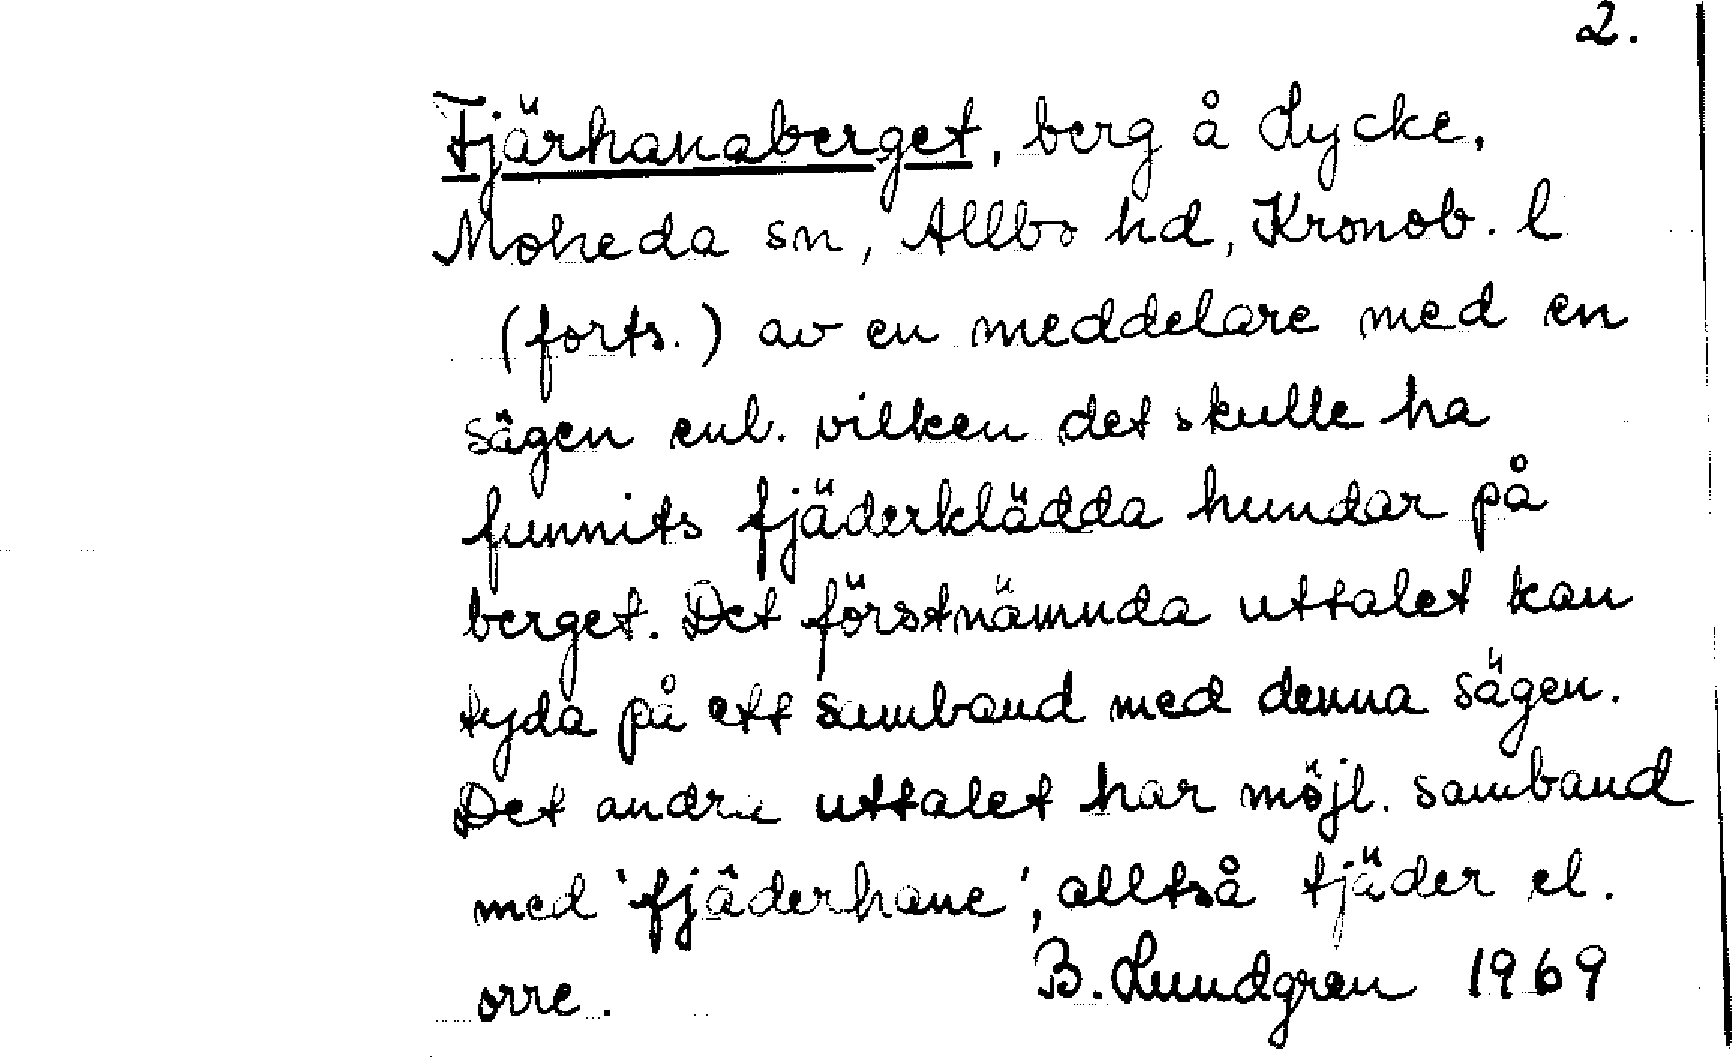 2.
Fjärhanaberget, berg å Lycke,
Moheda sn, Allbo hd, Kronob. l
(forts.) av en meddelare med en
sägen enl. vilken det skulle ha
funnits fjäderklädda hundar på
berget. Det förstnämnda uttalet kan
tyda på ett samband med denna sägen.
Det andra uttalet har möjl. samband
med 'fjäderhane', alltså tjäder el.
orre. B. Lundgren 1969